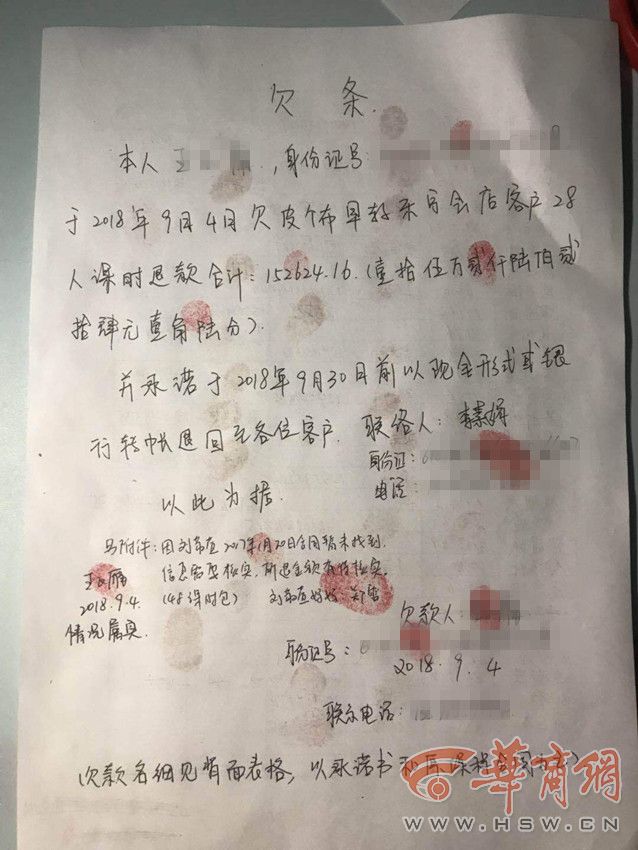 欠条.
本人王 ,身份证号
于2018年9月4日欠皮个布早教乐百会店客户28
人课时退款合计:152624.16.(壹拾伍万贰仟陆佰贰
拾肆元壹角陆分).
并承诺于2018年9月30日前以现金形式或银
行转帐退回至各位客户.
联络人:
身份证:
电话:
以此为据.
另附件:因刘希 2017年1月20日合同暂未找到.
信息需要核实,所退金额有待核实.
(48课时包) 刘希
2018.9.4.
情况属实.
欠款人:
身份证号:
2018.9.4
联系电话:
(欠款名细见背面表格,以承诺书和原课程合同为
华商网
WWW.HSW.CN